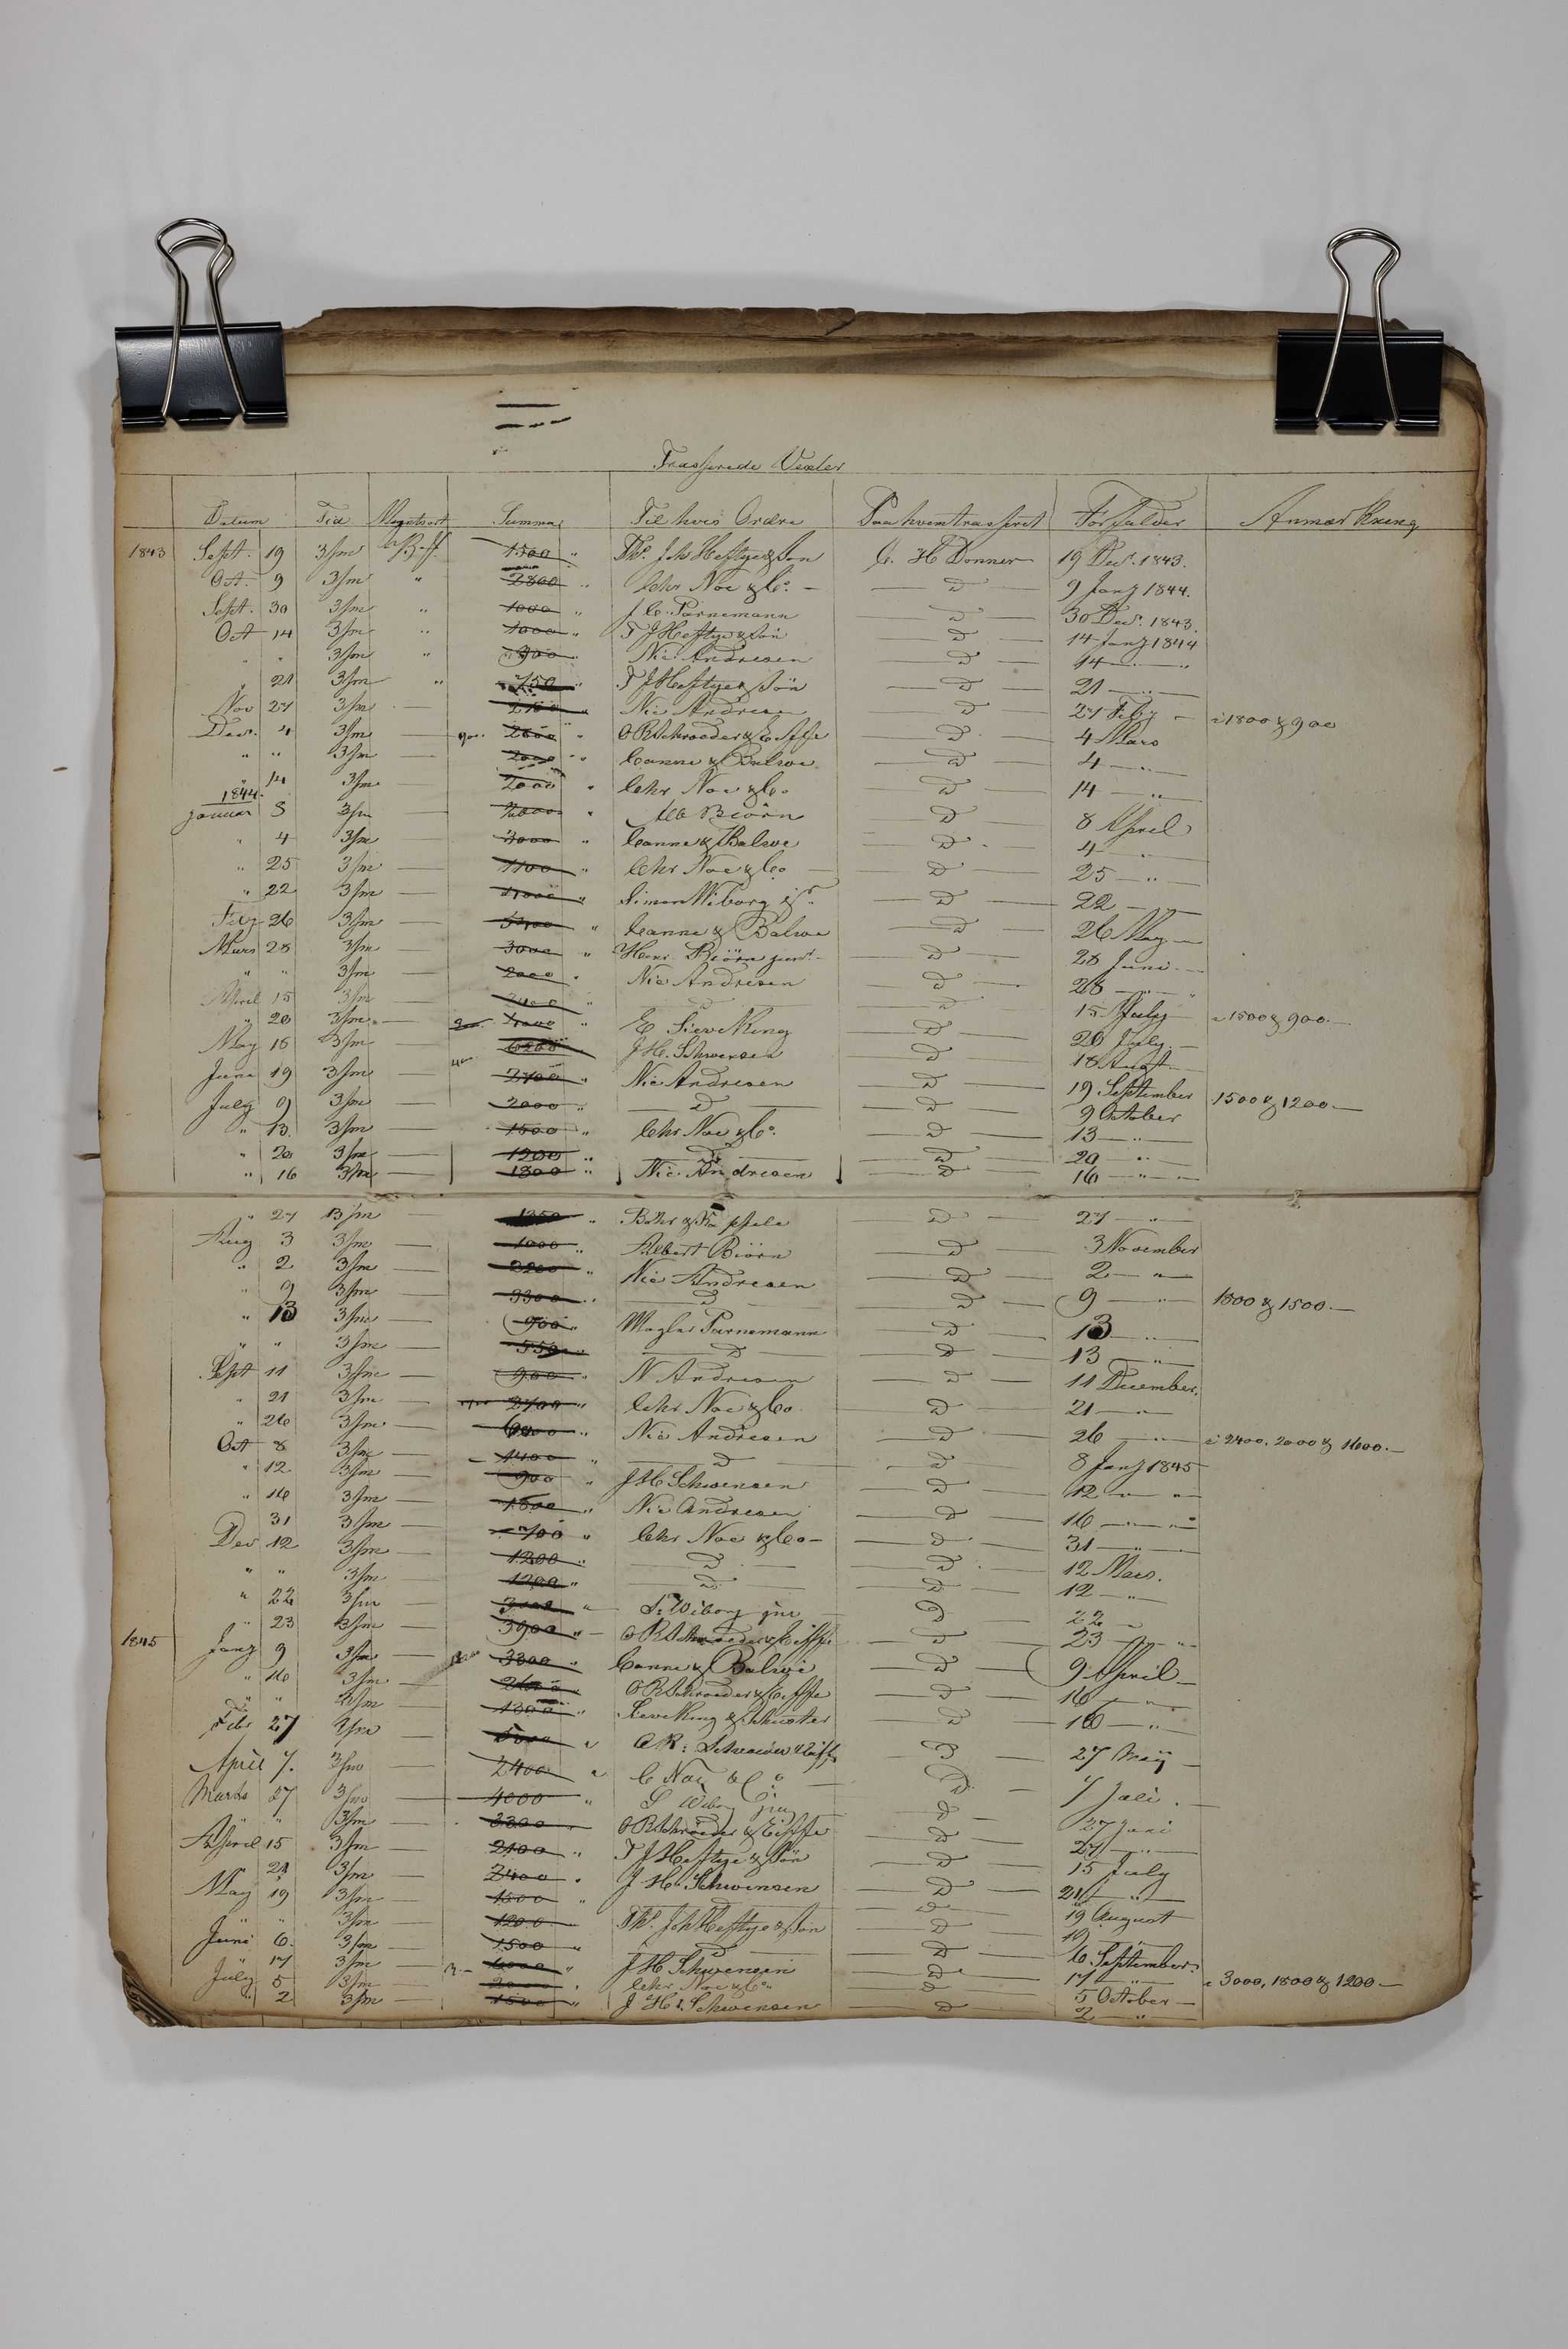 Trasserede Vexler
Datum Tid Myntsort Summa Til hvis Ordre Paa hvem trasseret Forfalder Anmærkning
1843 Sept. 19 3/m 1500 " Ths. Joh Heftye & Søn C. H Donner 19 Decr. 1843.
Oct. 9 3/m " 2800 " Chr Noe & Co. — D 9 Janj 1844.
Sept. 30 3/m " 1000 " J. C. Parnemann D 30 Decr. 1843.
Oct 14 3/m " 1000 " T J Heftye & Søn D 14 Janj 1844
" " 3/m " 900 " Nic. Andresen D 14 — " —
" 21 3/m " 750 " T J Heftye & Søn D 21 — " —
Nov 27 3/m — " Nic Andresen D 27 Feby — i 1800 & 900
Decr. 4 3/m — 900. " O R Schroeder & Eiffe D 4 Mars
" " 3/m — 2000 " Canne & Balwe D 4 — " —
" 14 3/m — 2000 " Chr Noe & Co D 14 — " —
1844
Januar 8 3/m — " Biörn D 8 April
" 4 3/m — 3000 " Canne & Balwe D 4 — " —
" 25 3/m — 1100 " Chr Noe & Co — D 25 — " —
" 22 3/m — " Simon Wiborg jr. D 22 — " —
Feby 26 3/m — " Canne & Balwe D 26 May —
Mars 28 3/m — 3000 " Biörn junr. — D 28 Juni —
" " 3/m — 2000 " Nic Andresen D 28 — " —
April 15 3/m — 2400 " D D 15 July — i 1500 & 900. —
" 20 3/m — " E Sieveking D 20 July —
May 18 3/m — " J H. Schwensen D 18 Augt. —
Juni 19 3/m — 2700 " Nic Andresen D 19 September 1500 & 1200. —
July 9 3/m — 2000 " D D 9 October
" 13 3/m — 1500 " Chr Noe & Co. D 13 — " —
" 20 3/m — 1200 " D D 20 — " —
" 16 3/m — 1800 " Nic. Andresen D 16 — " —
" 27 3/m — 1350 " D 27 — " —
Aug 3 3/m — 1000 " Albert Biörn D 3 November
" 2 3/m — " Nic Andresen D 2 — " —
" 9 3/m — 3300 " D D 9 — " — 1800 & 1500. —
" 13 3/m — 900 " Parnemann D 13 — " —
" " 3/m — 550 " D D 13 — " —
Sept 11 3/m — 900 " N Andresen D 11 December.
" 21 3/m — 2700 " Chr Noe & Co. D 21 — " —
" 26 3/m — 6000 " Nic Andresen D 26 — " — i 2400. 2000 & 1600. —
Oct 8 3/m — 1400 " D D 8 Janj 1845
" 12 3/m — 900 " J H Schwensen D 12 — " —
" 16 3/m — 1800 " Nic Andresen D 16 — " —
31 3/m — 700 " Chr Noe & Co — D 31 — " —
Dec 12 3/m — 1200 " D D 12 Mars.
" " 3/m — 1200 " D D 12 — " —
" 22 3/m — " S: Wiborg jnr D 22 "
" 23 3/m — 3900 " O R Schroeder & Eiffe D 23 — " —
1845 Janj 9 3/m — 3300 " Canne & Balwe D 9 April —
" 16 3/m — " O R Schroeder & Eiffe D 16 — " —
" " 3/m — " Sieveking & Schuster D 16 — " —
Febr 27 3/m " O R: Schroeder & Eiffe D 27 Maij —
April 7. 3/m 2400 " C Noe & Co D 7 Juli.
Marts 27 3/m 4000 " S Wiborg jun D 27 Juni
" " 3/m — 3300 " O R Schroeder & Eiffe D 27 — " —
April 15 3/m — 2100 " T J Heftye & Søn D 15 July
21 3/m — 2400 " J H. Schwensen D 21 — " —
May 19 3/m — 1500 " D D 19 August
" " 3/m — 1200 Ths. Joh Heftye & Søn D 19 — " —
Juni 6. 3/m — 1500 " D D 6 September.
" 17 3/m — " J H Schwensen D 17 — " — i 3000, 1800 & 1200 —
July 5 3/m — " Chr Noe & Co. D 5 October —
" 2 3/m — 1500 " J H. Schwensen D 2 — " —